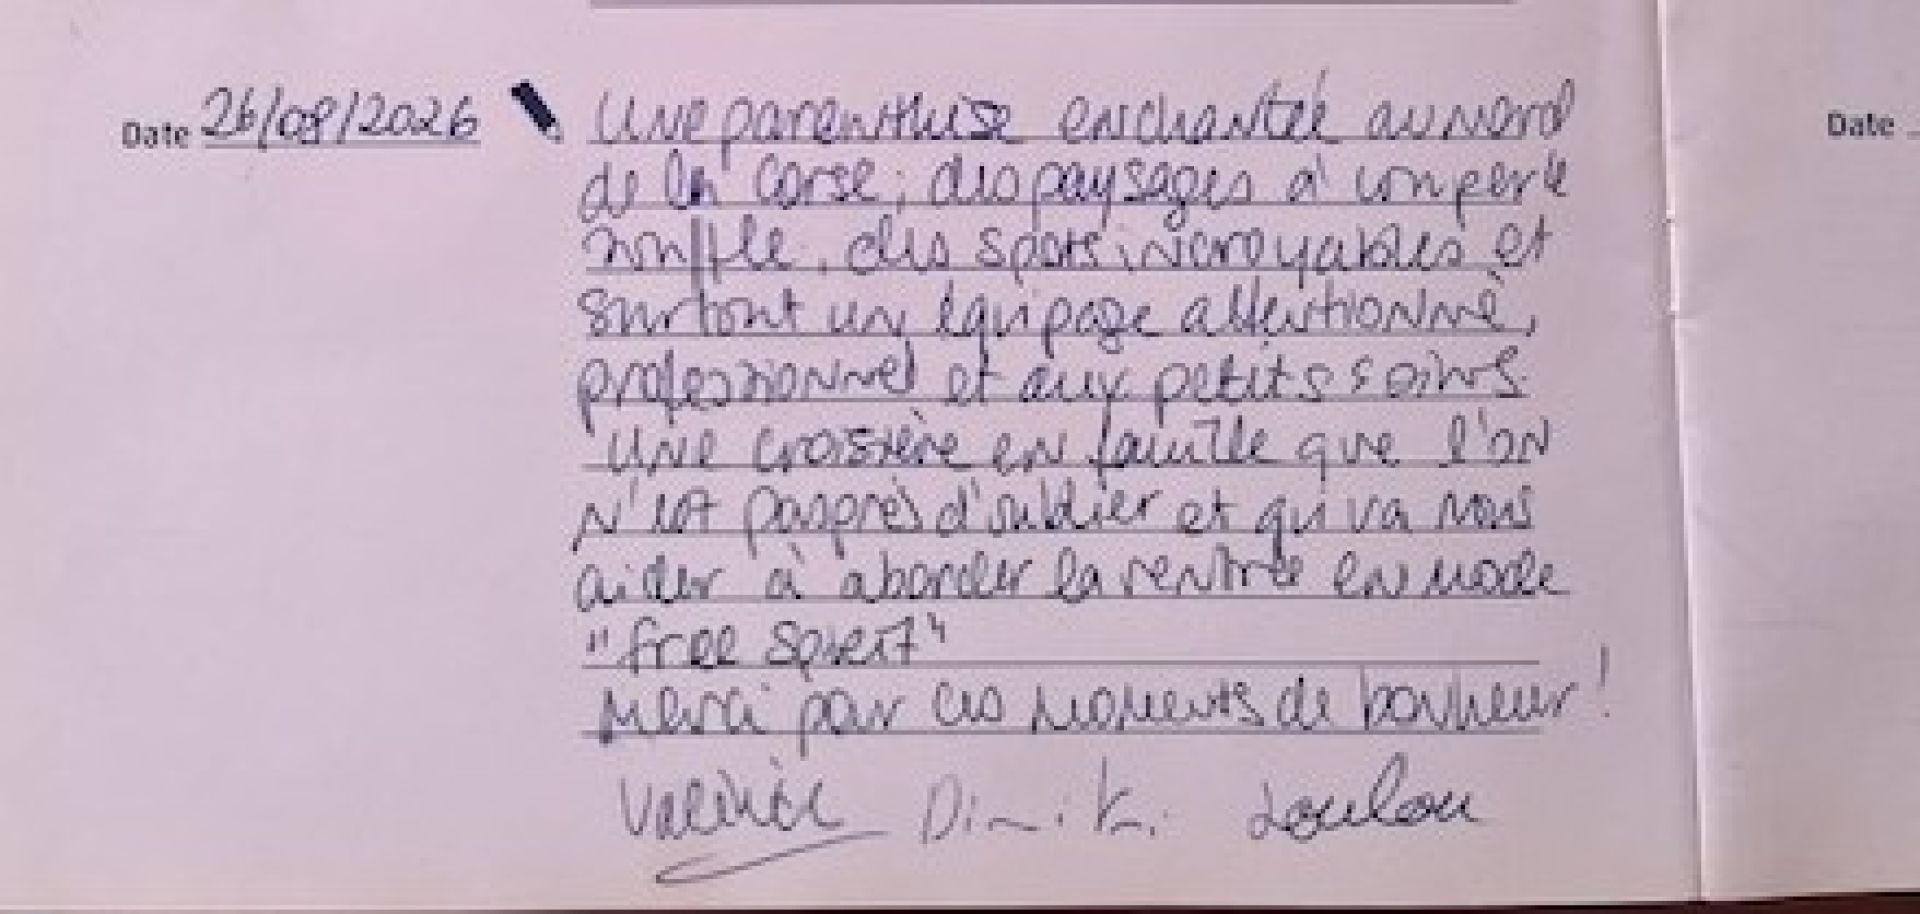 Date 26/08/2026
Une parenthèse enchantée au nord
de la Corse, des paysages à couper le
souffle, des spots incroyables et
surtout un équipage attentionné,
professionnel et aux petits soins
Une croisière en famille que l'on
n'est pas près d'oublier et qui va nous
aider à aborder la rentrée en mode
"free spirit"
Merci pour ces moments de bonheur !
Dimitri Loulou
Date